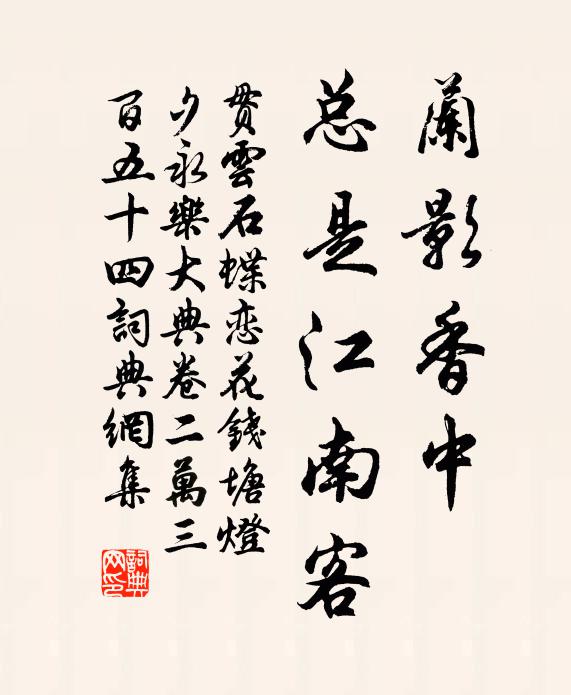 蘭影香中
总是江南客
貫雲石蝶恋花錢塘燈
夕永樂大典卷二萬三
百五十四詞典網集
詞典网印